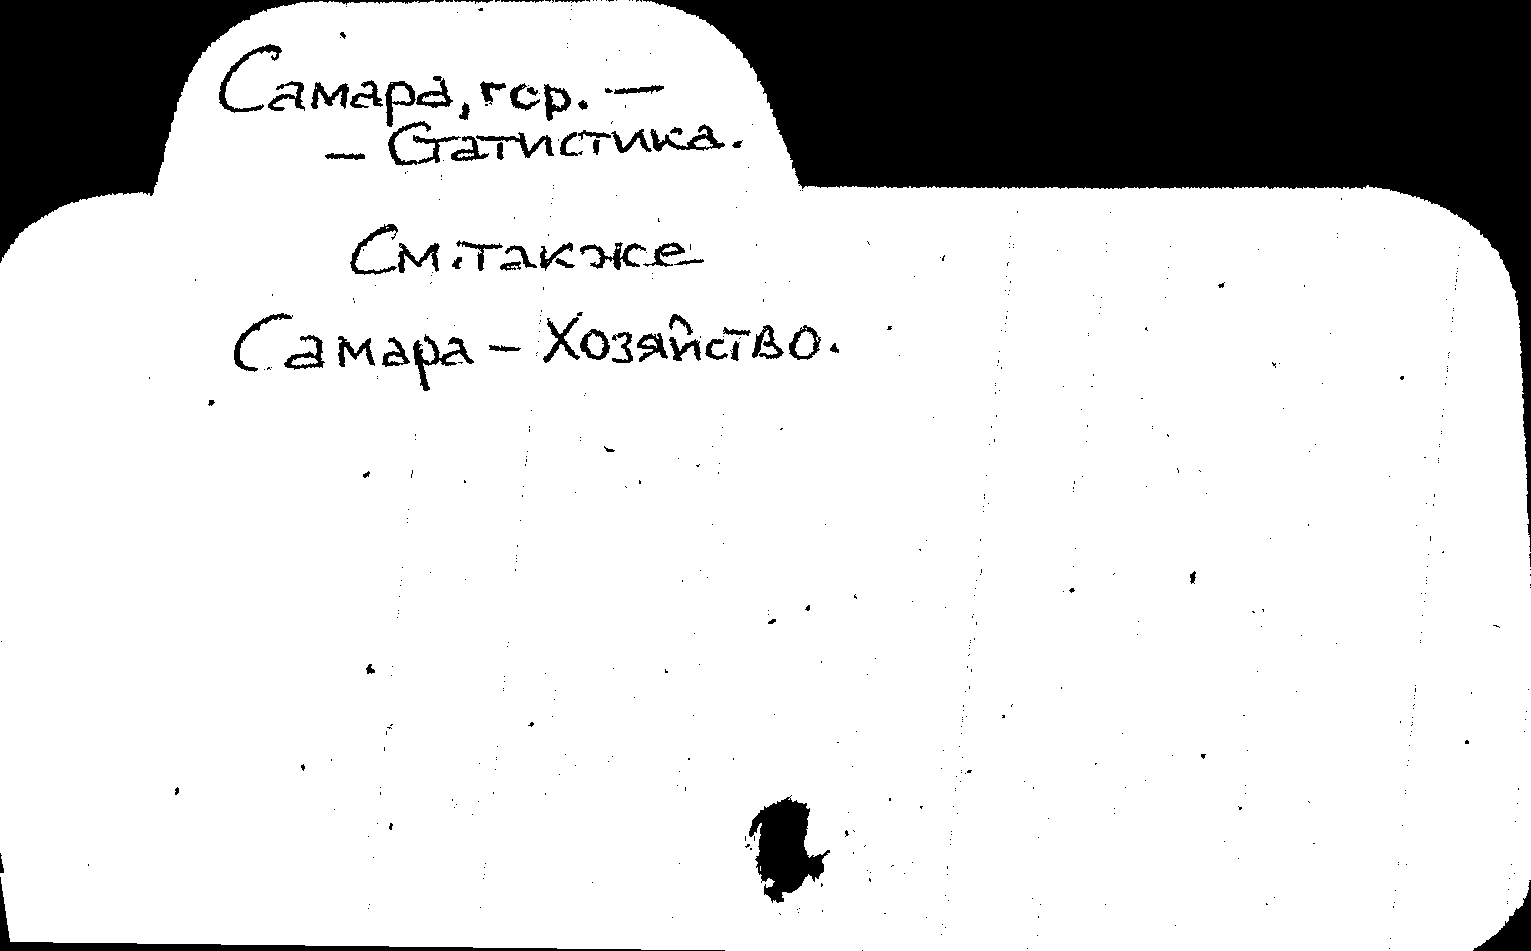 Самара, гор. —
— Статистика.
См. также
Самара — Хозяйство.